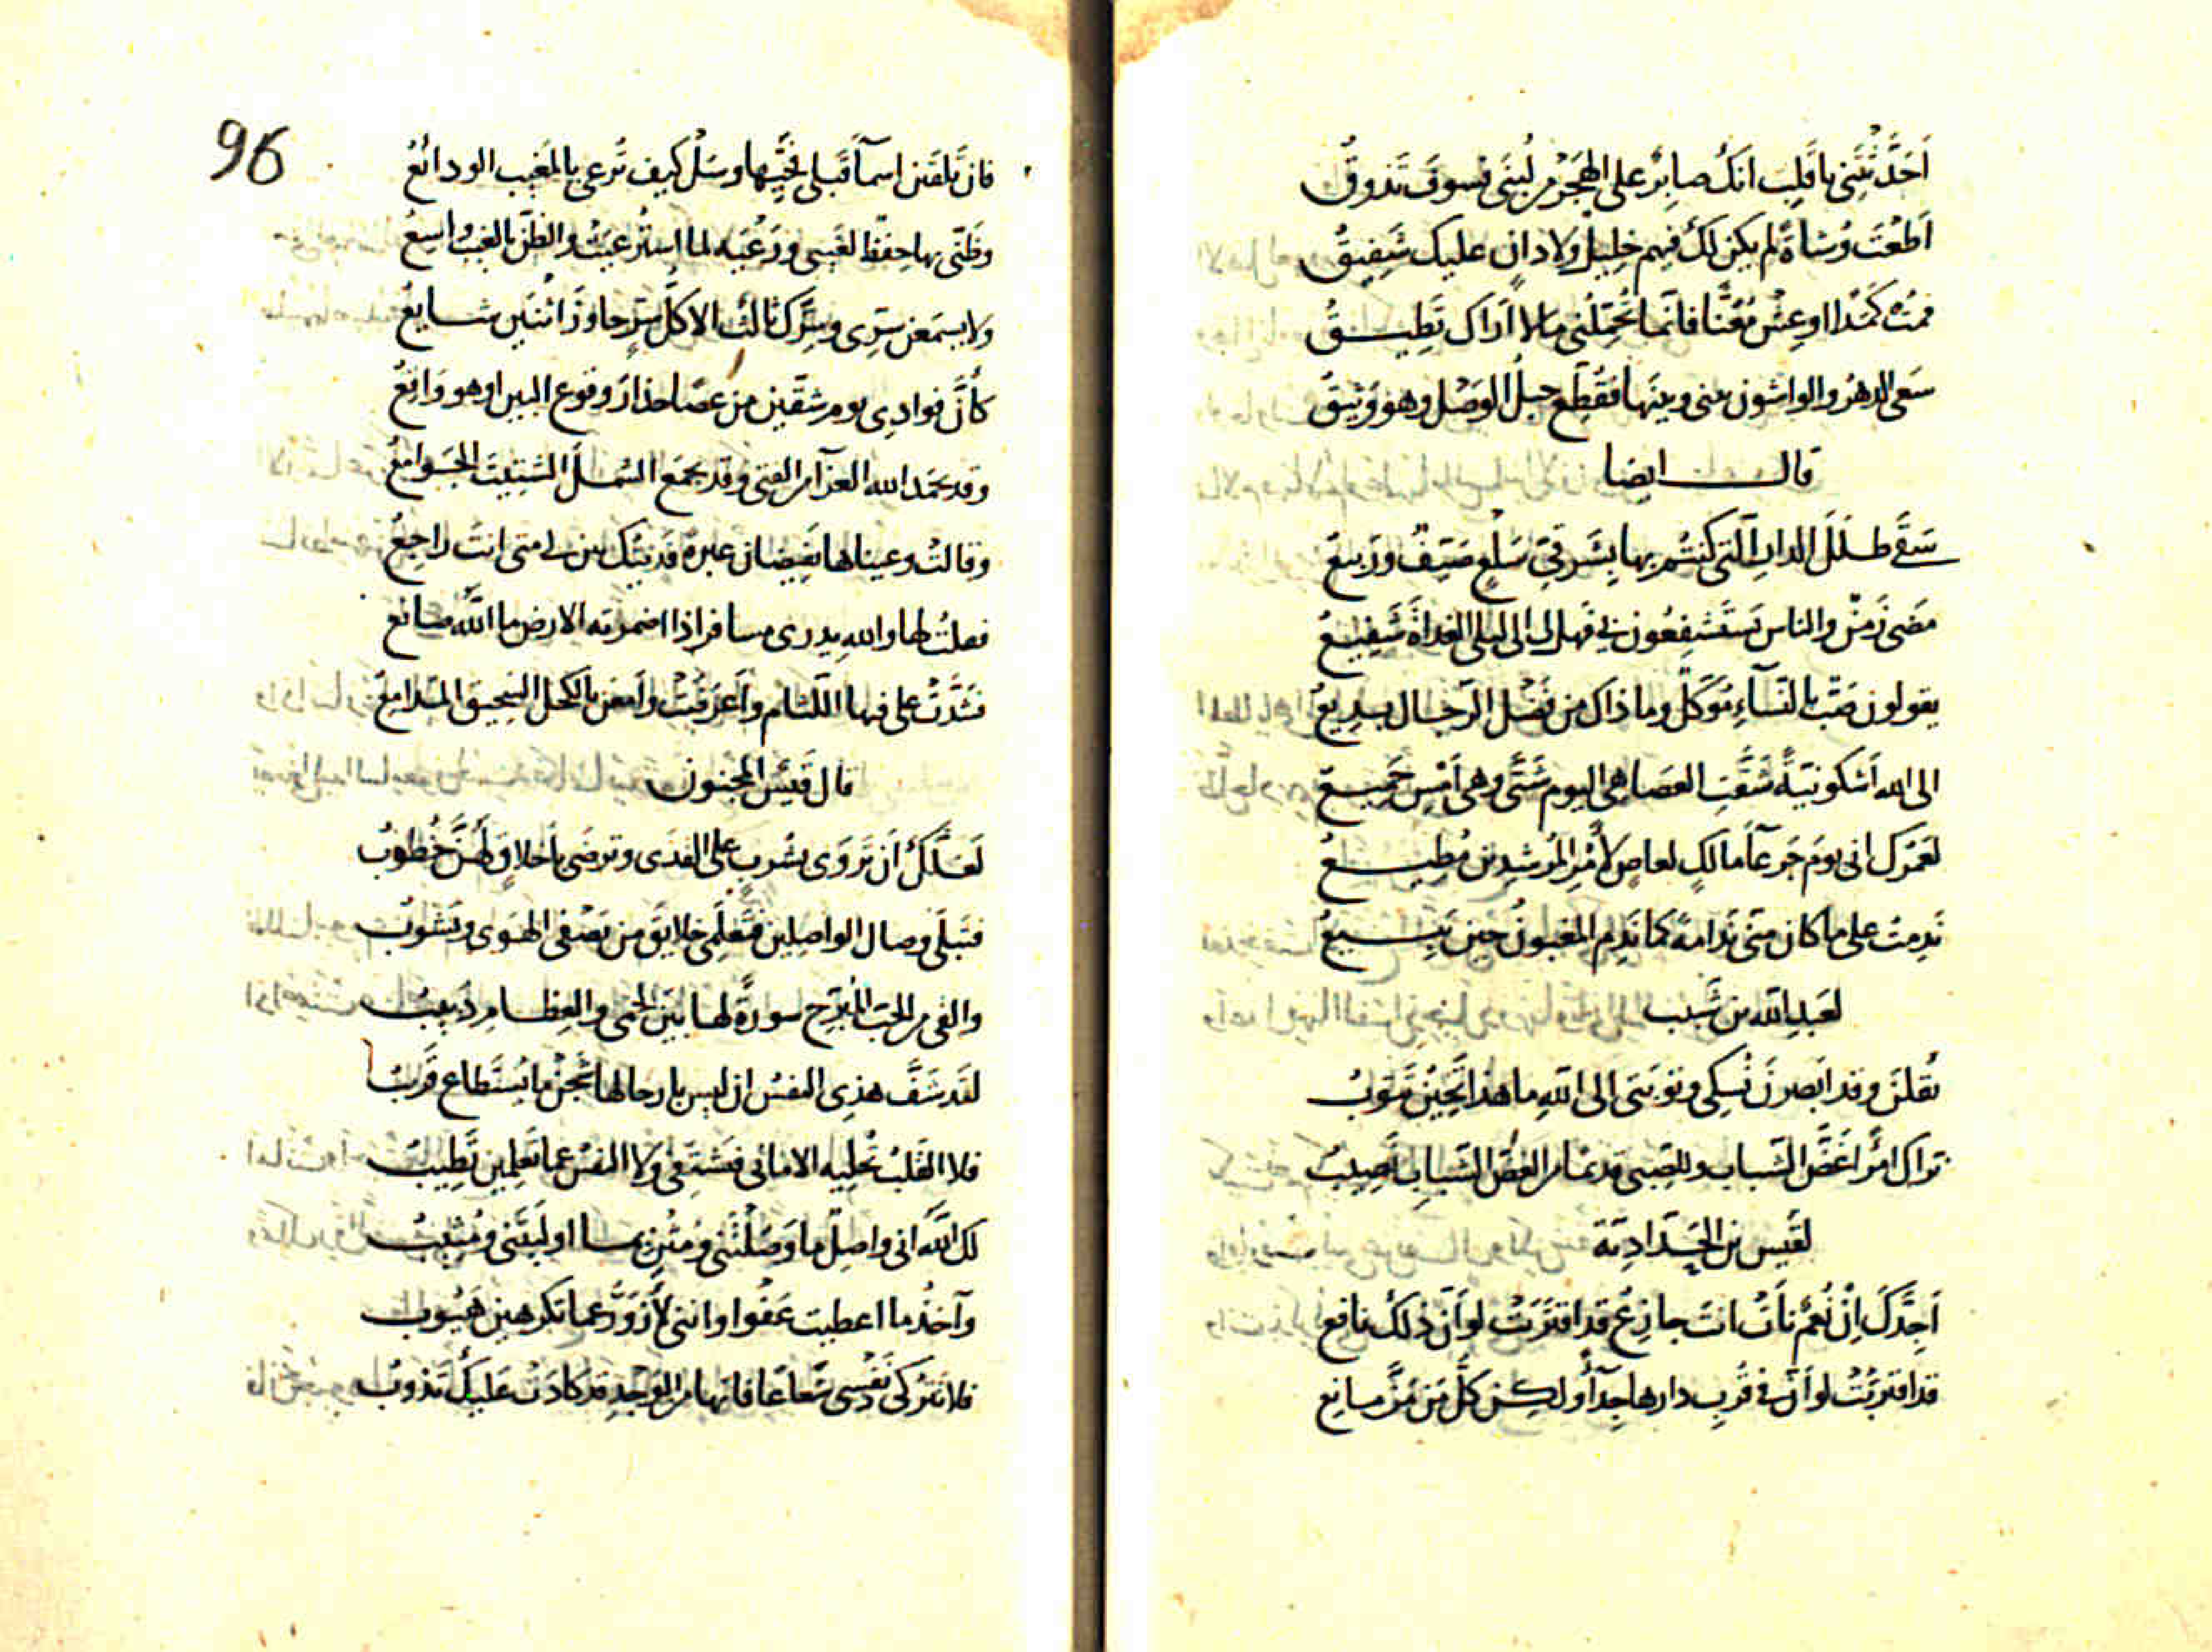 اَحَدَّثْتَنِي يا قَلب اَنك صابِرٌ على الهَجَرِ من لُبنَى فسوفَ تَذوقُ
اَطَعْتَ وُشاةً لم يكن لكَ فيهم خليلٌ ولا دانٍ عليك شَفِيقُ
فمُت كَمَدًا او عِش مُعَنًّا فانما تُحَمّلُني ما لا اَراك تَطِيـــقُ
سَعى الدهرُ والواشون بيني وبينَها فقُطِّع حبلُ الوَصْل وهو وَثيقُ
قالــــ ايضا
سَقَى طـلَلَ الدارِ التي كنتُم بها بِشَرقيّ سَلْعٍ صَيّفٌ ورَبيعُ
مَضَى زَمَنٌ والناس يَستَشفِعُون بي فهل لى الى ليلى الغداةَ شَفِيعُ
يقولون صَبٌّ بالنسآءِ مُوَكّلٌ وما ذاك من فَضل الرّجـال بـدِيعُ
الى الله اَشكو نيّةً شَقَّتِ العَصَا هي اليوم شَتَّى وهي اَمْسِ جَمِيـعُ
لعَمْرك انى يومَ جَرعآء مالكٍ لعاصٍ لاَمْرِ المُرشِدين مُطِيـــعُ
نَدِمتُ على ما كان منّى نَدامةً كما نَدِم المغبونُ حين يَبِـــيعُ
لعَبدِ الله بن شَبيب
يَقُلنَ وقد ابصرنَ نُسكى وتوبتى الى اللهِ ما هذا بحِينٍ تَتوبُ
نراك امرًا غَضَّ الشَباب وللصِبى قد عامر الغضّ الشَبابِ نَصِيبُ
لقَيس بن الحَـدّادِيّة
اَجِدَّكَ اِنْ نُعْمٌ نأَتْ انتَ جازِعُ قد اقتَرَبَتْ لو اَنّ ذلك نافع
قد اقتربَتْ لو اَنّ فى قُربِ دارها جدآءً ولكِـن كلُّ مَن ضَنَّ مـانِع
96
فان تلقَين اسمآ قَبلى فحَيِّها وسَلْ كيف تُرعى بالمَغيب الودائعُ
وظنّى بها حِفظٌ لغَيبى ورَعيَة لما استُرعِيَتْ والظنّ بالغيبِ واسِعُ
ولا يسمَعَن سِرّى وسِرَّك ثالث الا كلّ سِرٍّ جاوَزَ اثنَين شـــايعُ
كأنَّ فوادِى يوم شقّين من عَصًا حذارَ وقوع البين او هو وَاقِعُ
وقد يحمَد الله العزآء من الفتى وقد يجمَع الشَملَ الشَتِيتَ الجَـوامعُ
وقالتْ وعيناها تفِيضان عبرةً فديتك بيّن لى متى انتَ راجِعُ
فقلتُ لها والله يدرى مسافر اذا اضمرته الارض ما اللهُ صـانع
فشَدَّتْ على فيها اللثـام واَعرَضَتْ وامعن بالكحل السحيق المـدامِعُ
قال قَيسٌ المجنون
لَعَـلَّكَ اَن تَروَى بشُربٍ على القذى وترضَى باَخلاقٍ لهُـنَّ خُطُوبُ
فتَبلَى وصال الواصلين فتَعلَمى خلايقَ من يَصْفى الهَوى ويَشُوبُ
والقى من الحبّ المُبَرّح سورةً لهـا بَيْن لحمى والعِظـام دَبيبُ
لقد شَفَّ هذى النفس ان ليس بارحا لها شَجَنٌ ما يُستَطاع قَريبُ
فلا القَلبُ تُخلِيه الامانى فيَشتفى ولا النفسُ عما تعلمين تَطِيبُ
لك اللهَ انى واصِلٌ ما وَصَلْتِنى ومُثنٍ بمـا اولَيْتَنى ومُثيبُ
وآخذُ ما اعطيت عَفْوا واننى لاَزوَرّ عما تكرهين هَيُوب
فلا تَترُكى نَفْسى شَعاعًا فانها من الوَجْدِ قد كادَتْ عَليك تَذوبُ